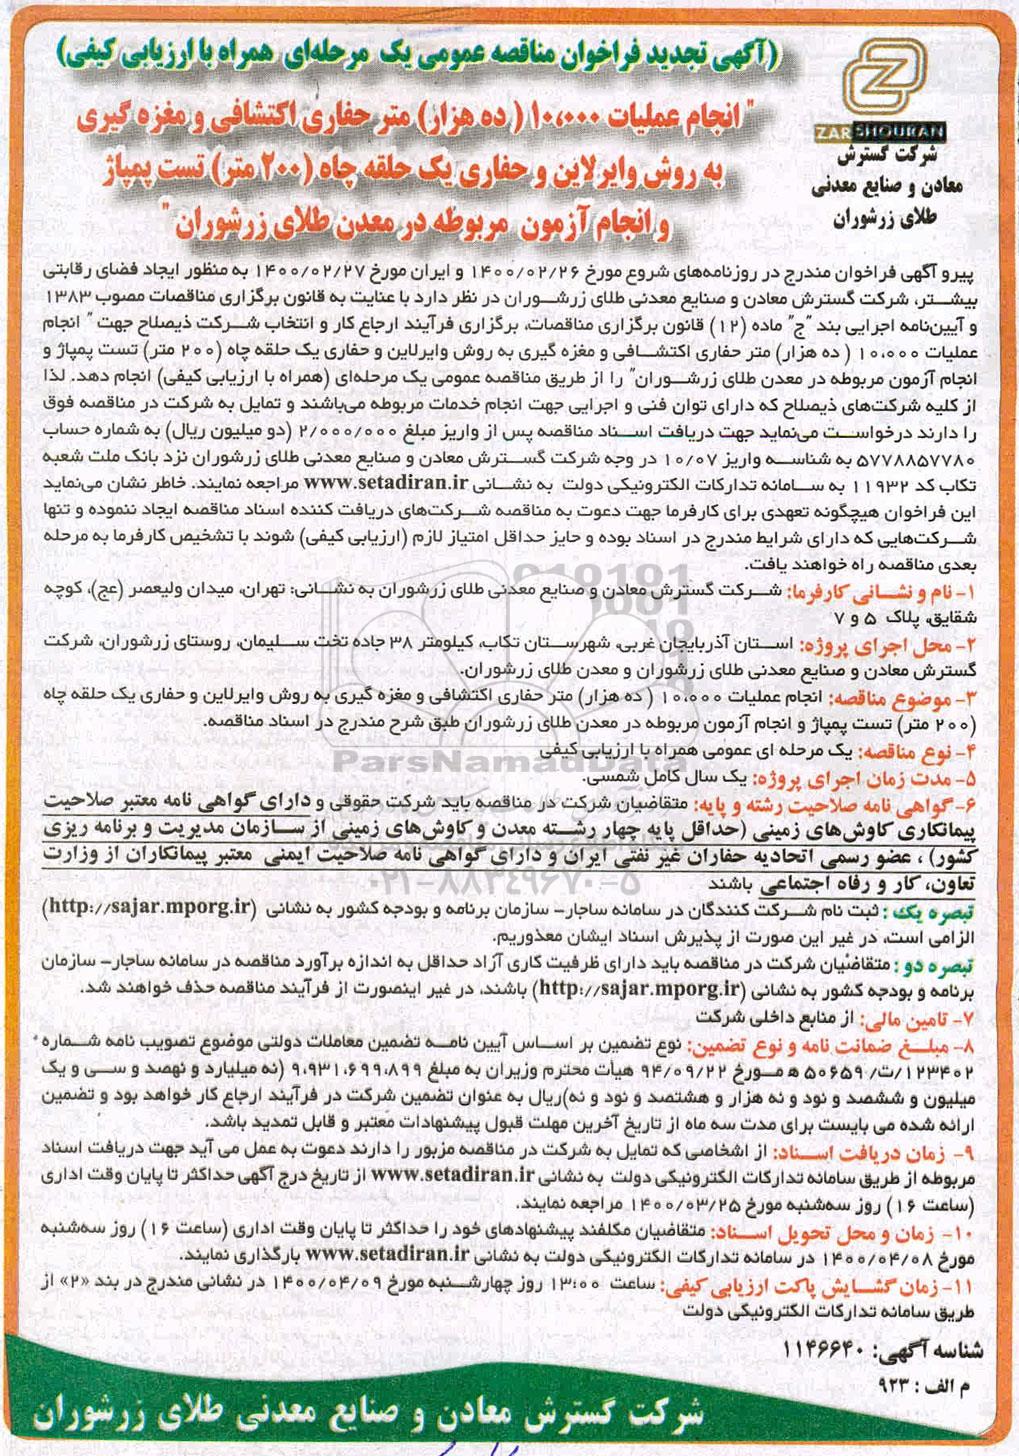 (آگهی تجدید فراخوان مناقصه عمومی یک مرحله‌ای همراه با ارزیابی کیفی)
ZARSHOURAN
شرکت گسترش
معادن و صنایع معدنی
طلای زرشوران
" انجام عملیات ۱۰،۰۰۰ ( ده هزار) متر حفاری اکتشافی و مغزه گیری
به روش وایرلاین و حفاری یک حلقه چاه (۲۰۰ متر) تست پمپاژ
و انجام آزمون مربوطه در معدن طلای زرشوران "
پیرو آگهی فراخوان مندرج در روزنامه‌های شروع مورخ ۱۴۰۰/۰۲/۲۶ و ایران مورخ ۱۴۰۰/۰۲/۲۷ به منظور ایجاد فضای رقابتی
بیشتر، شرکت گسترش معادن و صنایع معدنی طلای زرشوران در نظر دارد با عنایت به قانون برگزاری مناقصات مصوب ۱۳۸۳
و آیین‌نامه اجرایی بند "ج" ماده (۱۲) قانون برگزاری مناقصات، برگزاری فرآیند ارجاع کار و انتخاب شرکت ذیصلاح جهت " انجام
عملیات ۱۰،۰۰۰ ( ده هزار) متر حفاری اکتشافی و مغزه گیری به روش وایرلاین و حفاری یک حلقه چاه (۲۰۰ متر) تست پمپاژ و
انجام آزمون مربوطه در معدن طلای زرشوران" را از طریق مناقصه عمومی یک مرحله‌ای (همراه با ارزیابی کیفی) انجام دهد. لذا
از کلیه شرکت‌های ذیصلاح که دارای توان فنی و اجرایی جهت انجام خدمات مربوطه می‌باشند و تمایل به شرکت در مناقصه فوق
را دارند درخواست می‌نماید جهت دریافت اسناد مناقصه پس از واریز مبلغ ۲/۰۰۰/۰۰۰ (دو میلیون ریال) به شماره حساب
۵۷۷۸۸۵۷۷۸۰ به شناسه واریز ۱۰/۰۷ در وجه شرکت گسترش معادن و صنایع معدنی طلای زرشوران نزد بانک ملت شعبه
تکاب کد ۱۱۹۳۲ به سامانه تدارکات الکترونیکی دولت به نشانی www.setadiran.ir مراجعه نمایند. خاطر نشان می‌نماید
این فراخوان هیچگونه تعهدی برای کارفرما جهت دعوت به مناقصه شرکت‌های دریافت کننده اسناد مناقصه ایجاد ننموده و تنها
شرکت‌هایی که دارای شرایط مندرج در اسناد بوده و حایز حداقل امتیاز لازم (ارزیابی کیفی) شوند با تشخیص کارفرما به مرحله
بعدی مناقصه راه خواهند یافت.
۱- نام و نشانی کارفرما: شرکت گسترش معادن و صنایع معدنی طلای زرشوران به نشانی: تهران، میدان ولیعصر (عج)، کوچه
شقایق، پلاک ۵ و ۷
۲- محل اجرای پروژه: استان آذربایجان غربی، شهرستان تکاب، کیلومتر ۳۸ جاده تخت سلیمان، روستای زرشوران، شرکت
گسترش معادن و صنایع معدنی طلای زرشوران و معدن طلای زرشوران.
۳- موضوع مناقصه: انجام عملیات ۱۰،۰۰۰ ( ده هزار) متر حفاری اکتشافی و مغزه گیری به روش وایرلاین و حفاری یک حلقه چاه
(۲۰۰ متر) تست پمپاژ و انجام آزمون مربوطه در معدن طلای زرشوران طبق شرح مندرج در اسناد مناقصه.
۴- نوع مناقصه: یک مرحله ای عمومی همراه با ارزیابی کیفی
ParsNamadData
۵- مدت زمان اجرای پروژه: یک سال کامل شمسی.
۶- گواهی نامه صلاحیت رشته و پایه: متقاضیان شرکت در مناقصه باید شرکت حقوقی و دارای گواهی نامه معتبر صلاحیت
پیمانکاری کاوش‌های زمینی (حداقل پایه چهار رشته معدن و کاوش‌های زمینی از سازمان مدیریت و برنامه ریزی
کشور) ، عضو رسمی اتحادیه حفاران غیر نفتی ایران و دارای گواهی نامه صلاحیت ایمنی معتبر پیمانکاران از وزارت
تعاون، کار و رفاه اجتماعی باشند
۰۲۱-۸۸۳۴۹۶۷۰-۵
تبصره یک : ثبت نام شرکت کنندگان در سامانه ساجار- سازمان برنامه و بودجه کشور به نشانی (http://sajar.mporg.ir)
الزامی است، در غیر این صورت از پذیرش اسناد ایشان معذوریم.
تبصره دو : متقاضیان شرکت در مناقصه باید دارای ظرفیت کاری آزاد حداقل به اندازه برآورد مناقصه در سامانه ساجار- سازمان
برنامه و بودجه کشور به نشانی (http://sajar.mporg.ir) باشند، در غیر اینصورت از فرآیند مناقصه حذف خواهند شد.
۷- تامین مالی: از منابع داخلی شرکت
۸- مبلغ ضمانت نامه و نوع تضمین: نوع تضمین بر اساس آیین نامه تضمین معاملات دولتی موضوع تصویب نامه شماره
۱۲۳۴۰۲/ت/ ۵۰۶۵۹ ه مورخ ۹۴/۰۹/۲۲ هیأت محترم وزیران به مبلغ ۹،۹۳۱،۶۹۹،۸۹۹ (نه میلیارد و نهصد و سی و یک
میلیون و ششصد و نود و نه هزار و هشتصد و نود و نه)ریال به عنوان تضمین شرکت در فرآیند ارجاع کار خواهد بود و تضمین
ارائه شده می بایست برای مدت سه ماه از تاریخ آخرین مهلت قبول پیشنهادات معتبر و قابل تمدید باشد.
۹- زمان دریافت اسناد: از اشخاصی که تمایل به شرکت در مناقصه مزبور را دارند دعوت به عمل می آید جهت دریافت اسناد
مربوطه از طریق سامانه تدارکات الکترونیکی دولت به نشانی www.setadiran.ir از تاریخ درج آگهی حداکثر تا پایان وقت اداری
(ساعت ۱۶) روز سه‌شنبه مورخ ۱۴۰۰/۰۳/۲۵ مراجعه نمایند.
۱۰- زمان و محل تحویل اسناد: متقاضیان مکلفند پیشنهادهای خود را حداکثر تا پایان وقت اداری (ساعت ۱۶) روز سه‌شنبه
مورخ ۱۴۰۰/۰۴/۰۸ در سامانه تدارکات الکترونیکی دولت به نشانی www.setadiran.ir بارگذاری نمایند.
۱۱- زمان گشایش پاکت ارزیابی کیفی: ساعت ۱۳:۰۰ روز چهارشنبه مورخ ۱۴۰۰/۰۴/۰۹ در نشانی مندرج در بند «۲» از
طریق سامانه تدارکات الکترونیکی دولت
شناسه آگهی: ۱۱۴۶۶۴۰
م الف : ۹۲۳
شرکت گسترش معادن و صنایع معدنی طلای زرشوران